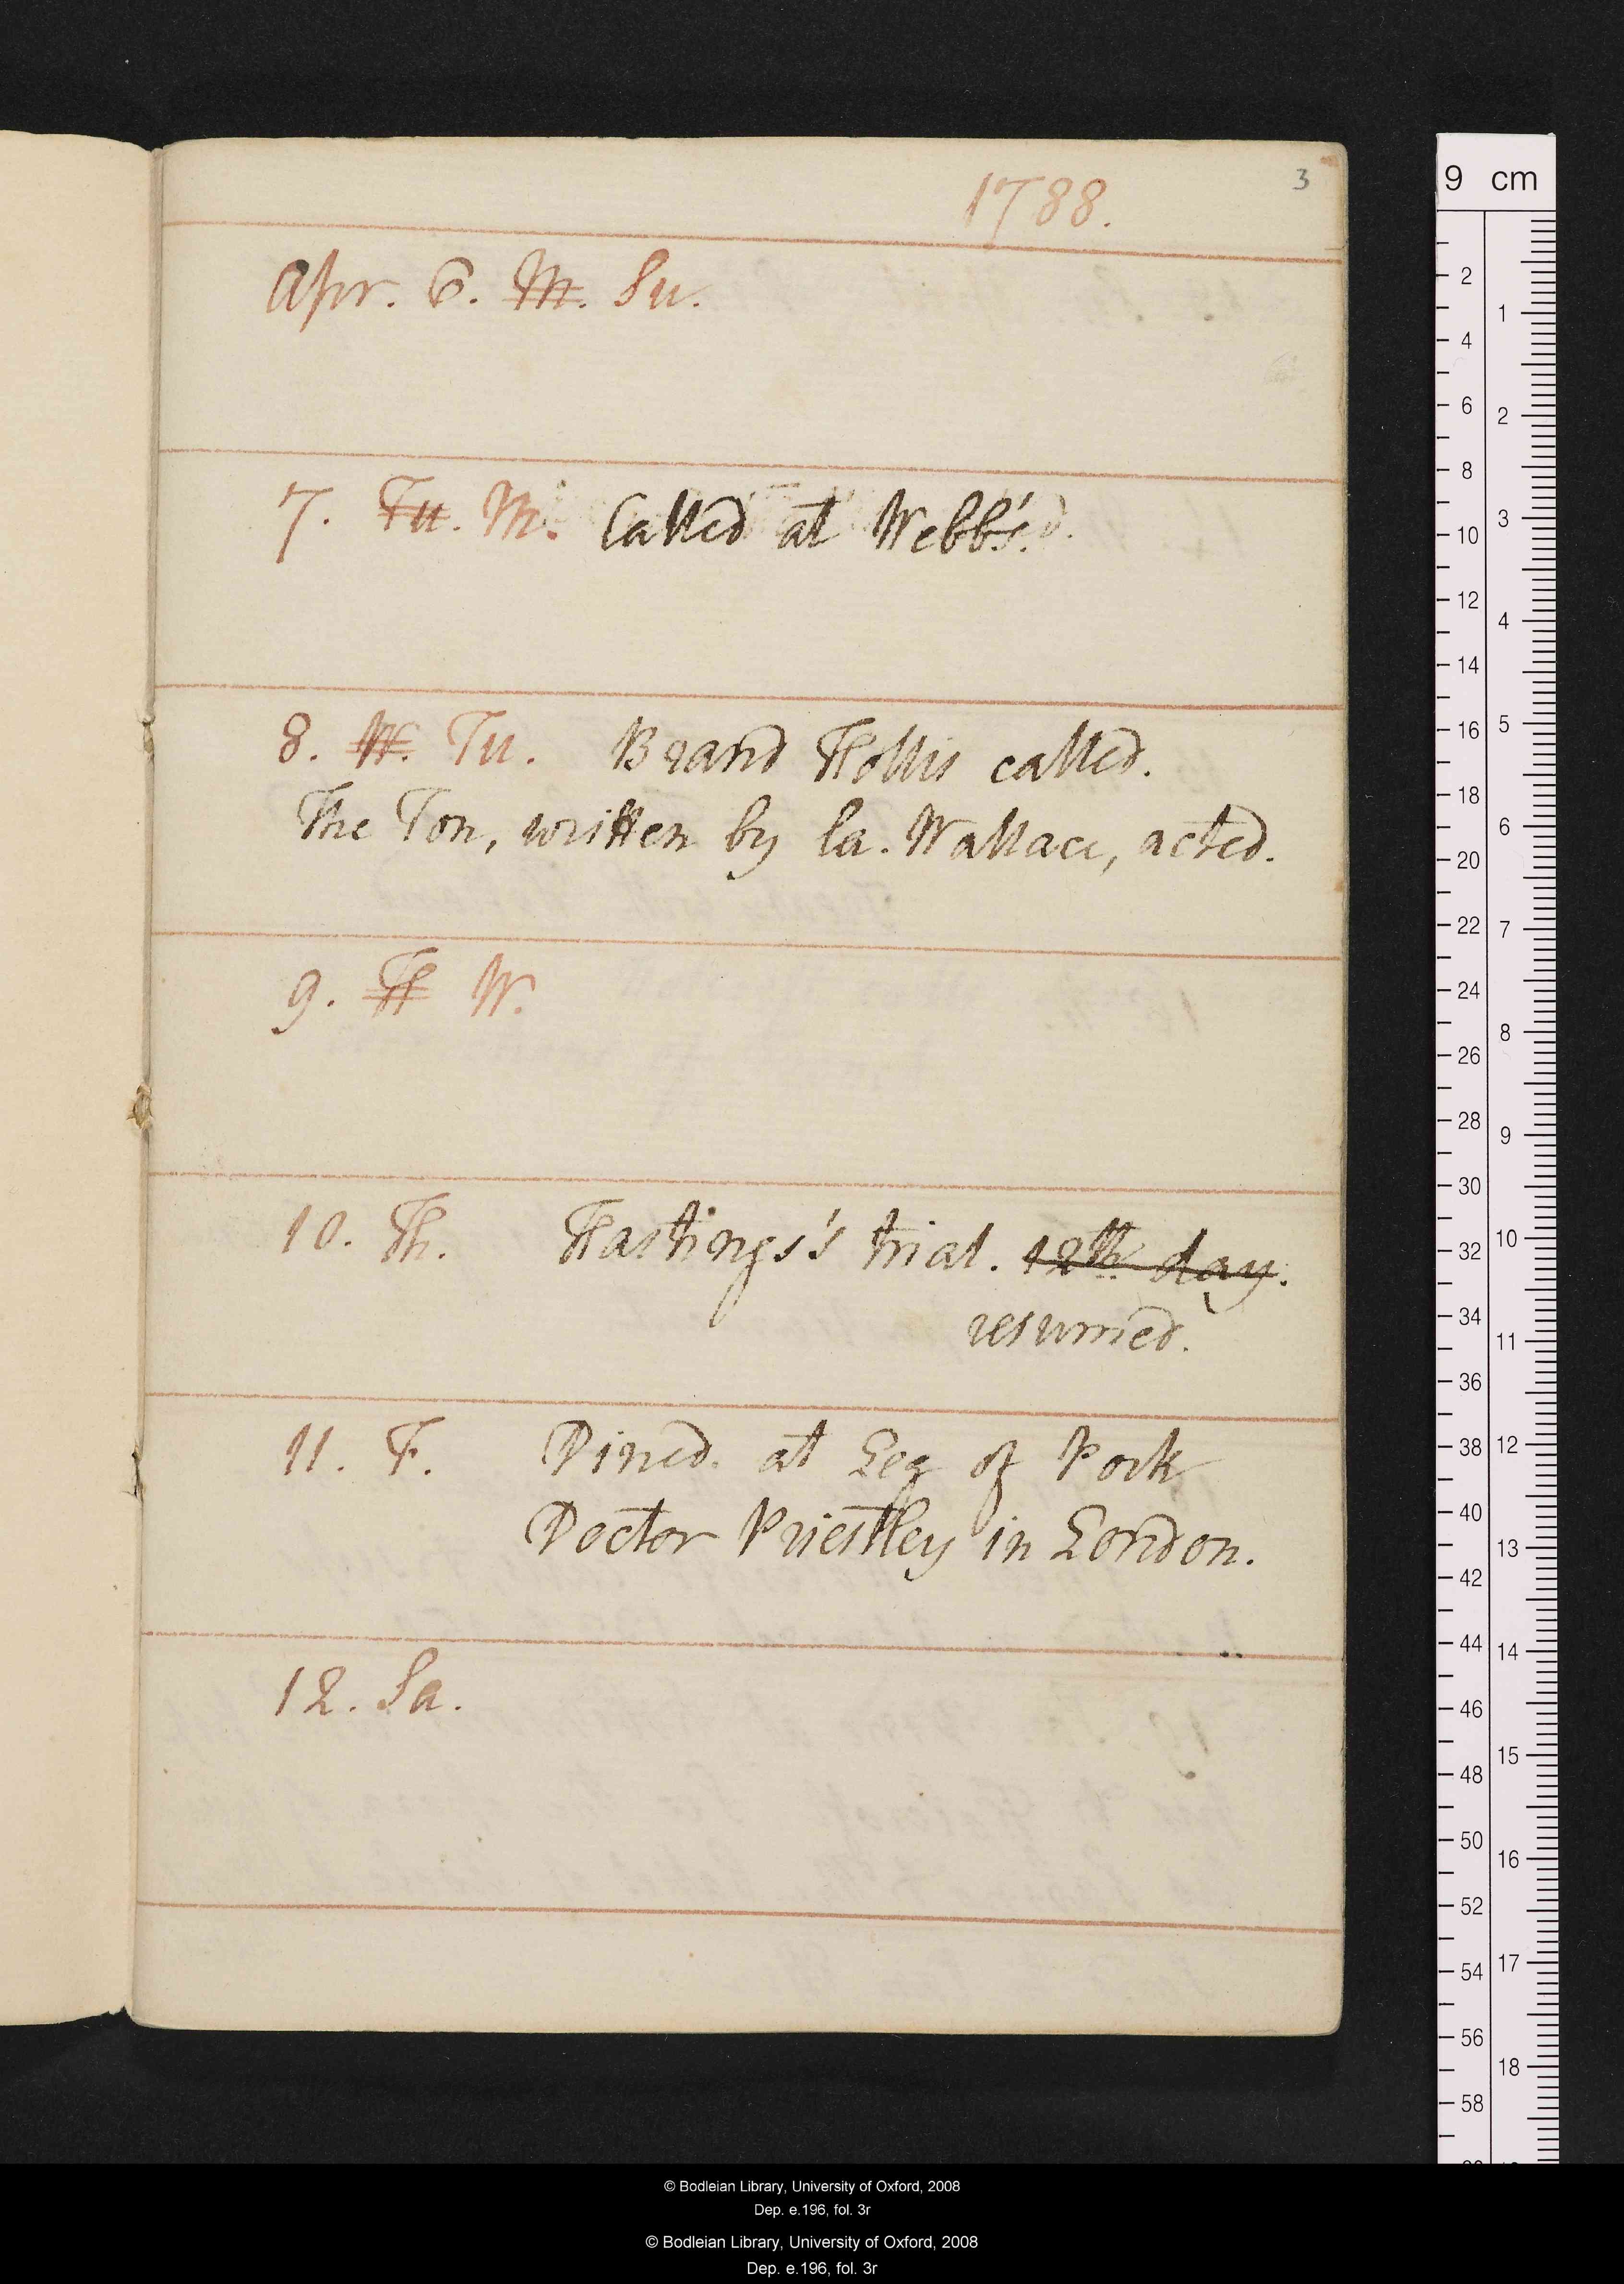 1788.
3
Apr. 6. M. Su.
7. Tu. M. Called at Webb's.
8. W. Tu. Brand Hollis called.
The Ton, written by La. Wallace, acted.
9. Th W.
10. Th. Hastings's trial. 12th day.
resumed.
11. F. Dined at Leg of Pork
Doctor Priestley in London.
12. Sa.
9 cm
2
4
6
8
10
12
14
16
18
20
22
24
26
28
30
32
34
36
38
40
42
44
46
48
50
52
54
56
58
1
2
3
4
5
6
7
8
9
10
11
12
13
14
15
16
17
18
© Bodleian Library, University of Oxford, 2008
Dep. e.196, fol. 3r
© Bodleian Library, University of Oxford, 2008
Dep. e.196, fol. 3r